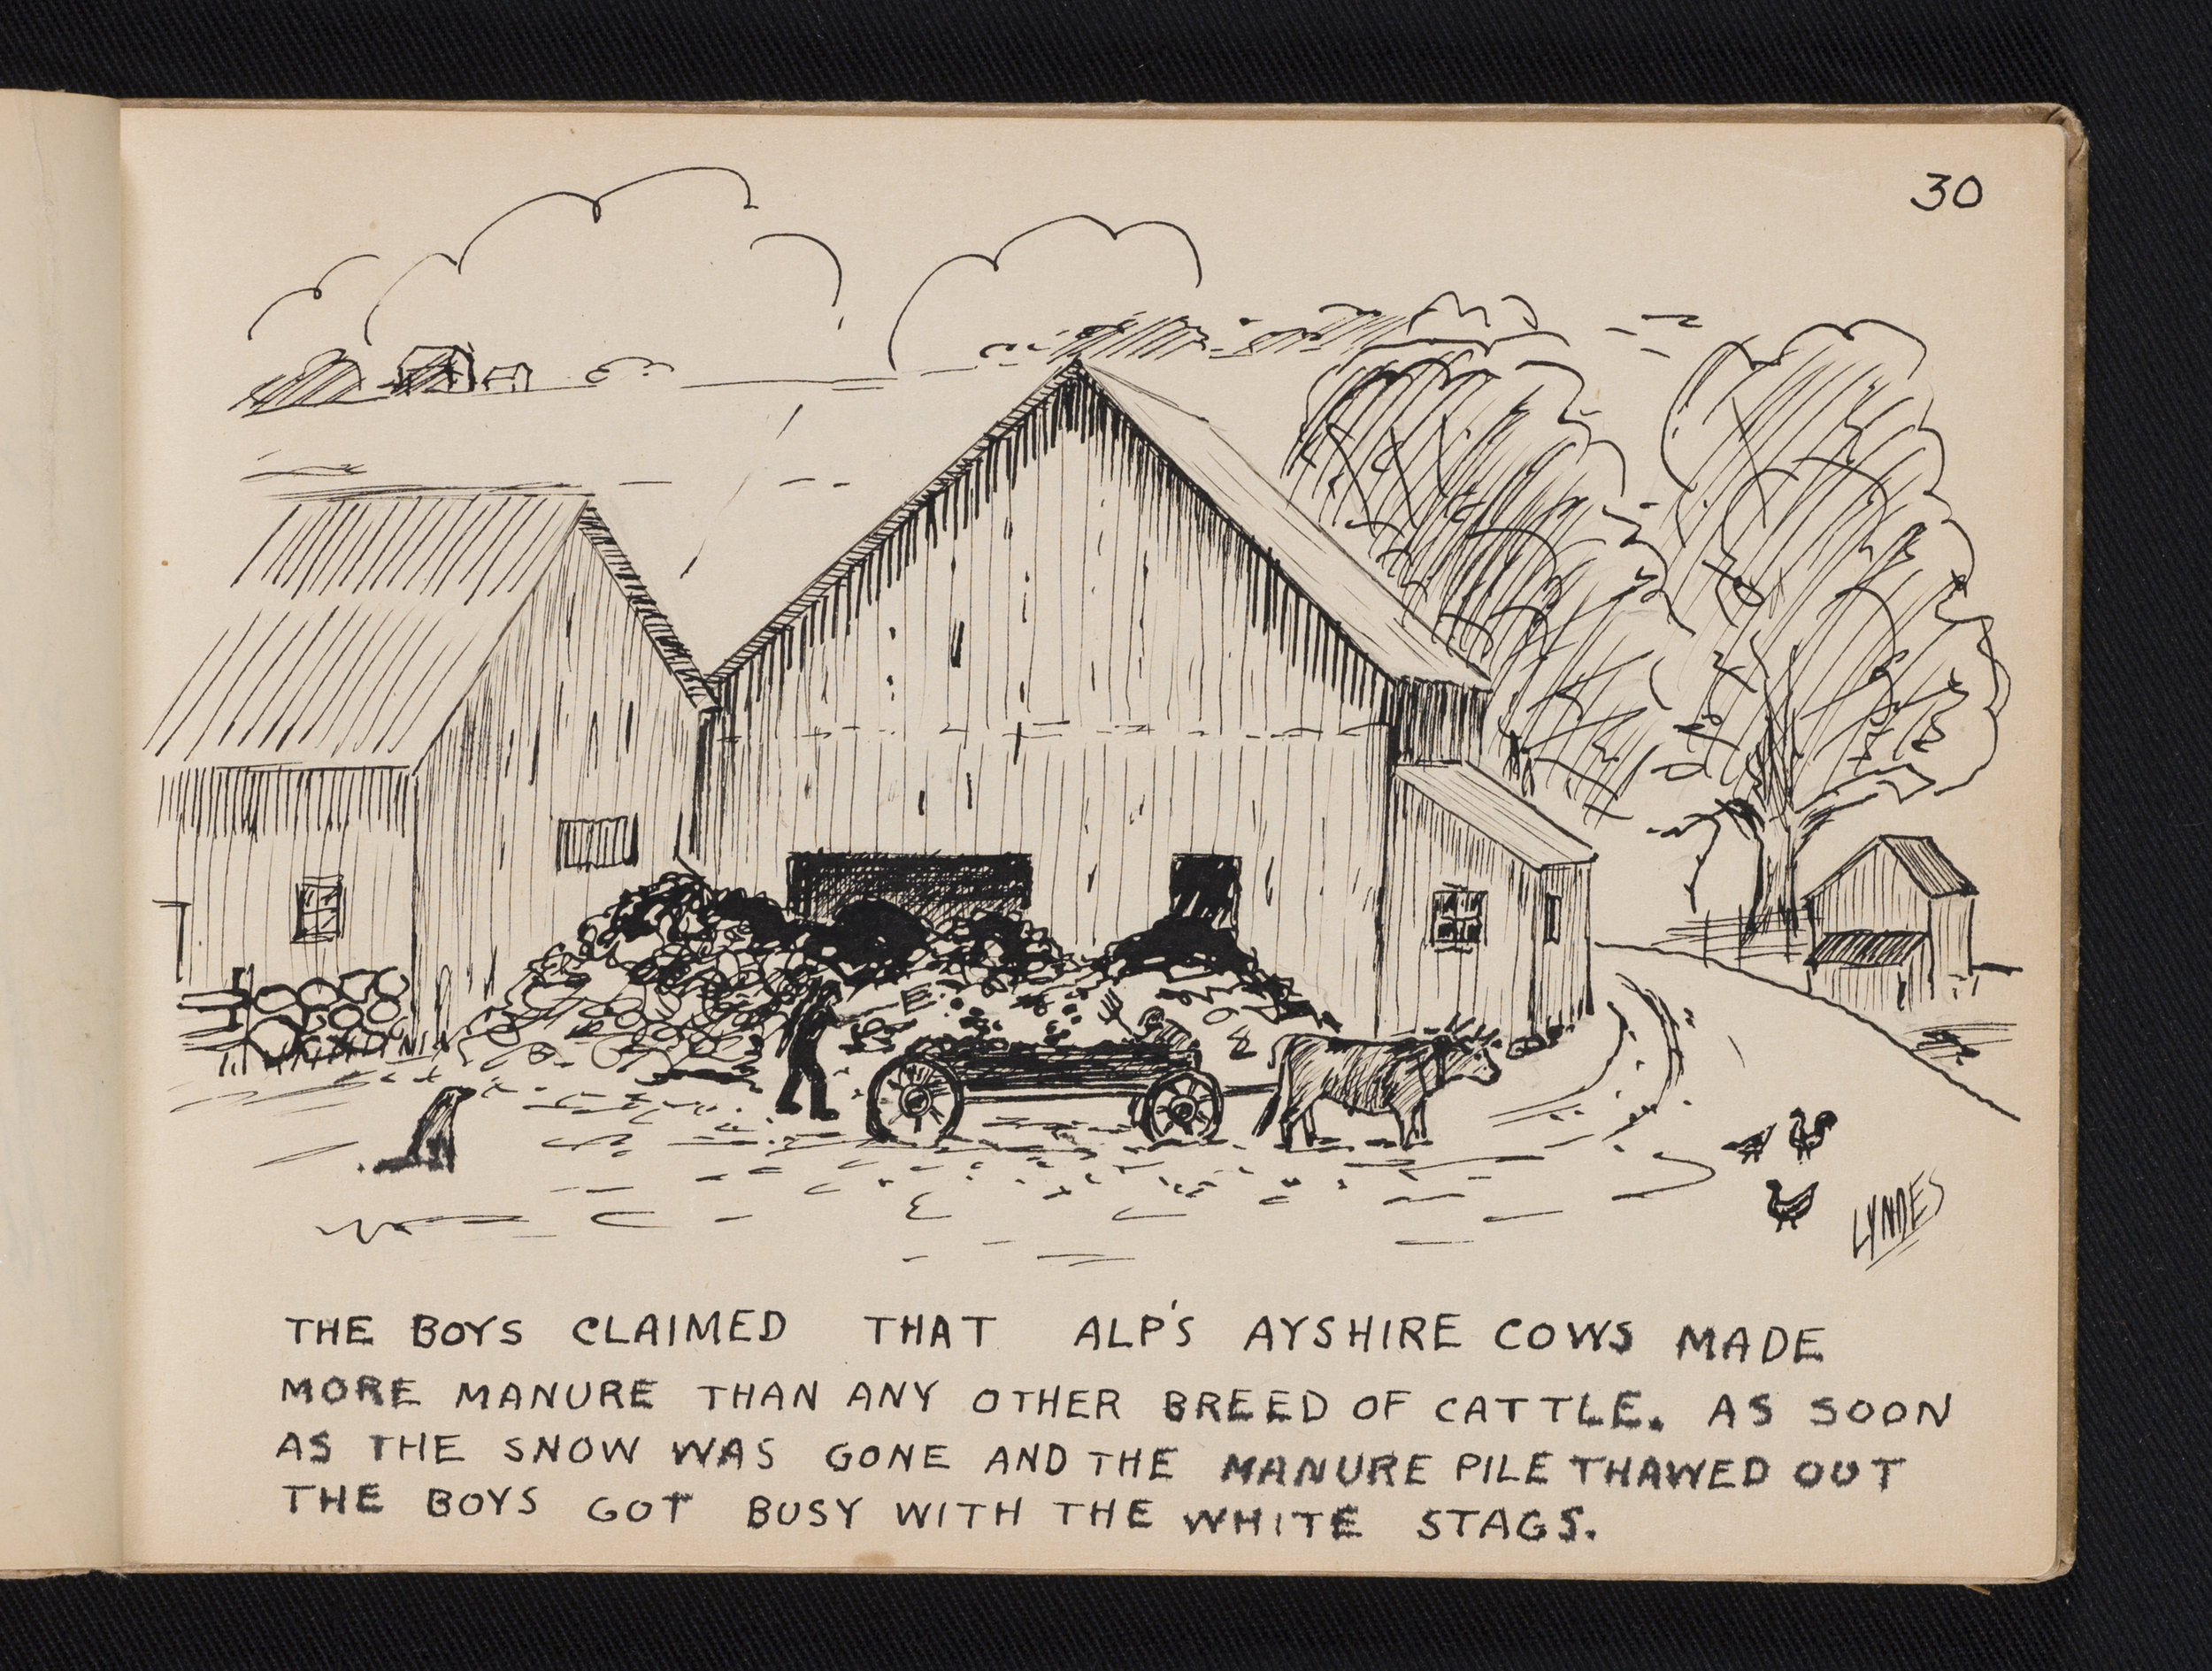 30
LYNDES
THE BOYS CLAIMED THAT ALP'S AYSHIRE COWS MADE
MORE MANURE THAN ANY OTHER BREED OF CATTLE. AS SOON
AS THE SNOW WAS GONE AND THE MANURE PILE THAWED OUT
THE BOYS GOT BUSY WITH THE WHITE STAGS.